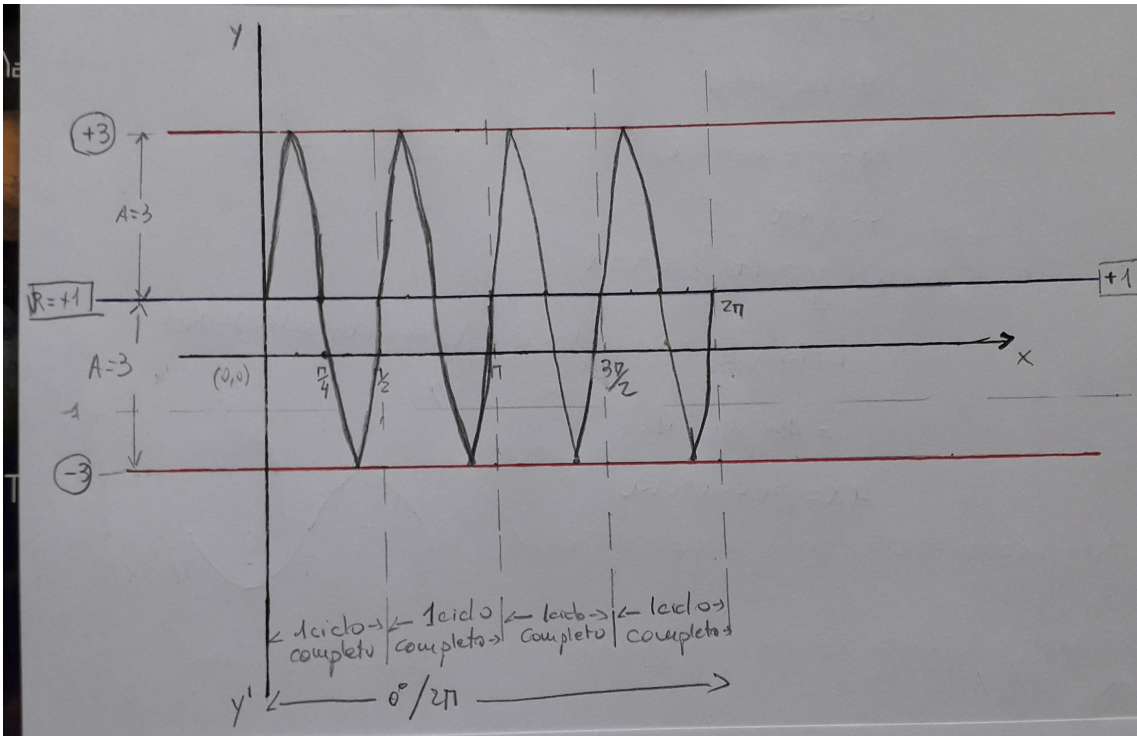 Y
+3
A=3
R=+1
+1
2π
A=3
(0,0)
π/4
π/2
π
3π/2
X
1
-3
1 ciclo completo
1 ciclo completo
1 ciclo completo
1 ciclo completo
Y'
0°/2π